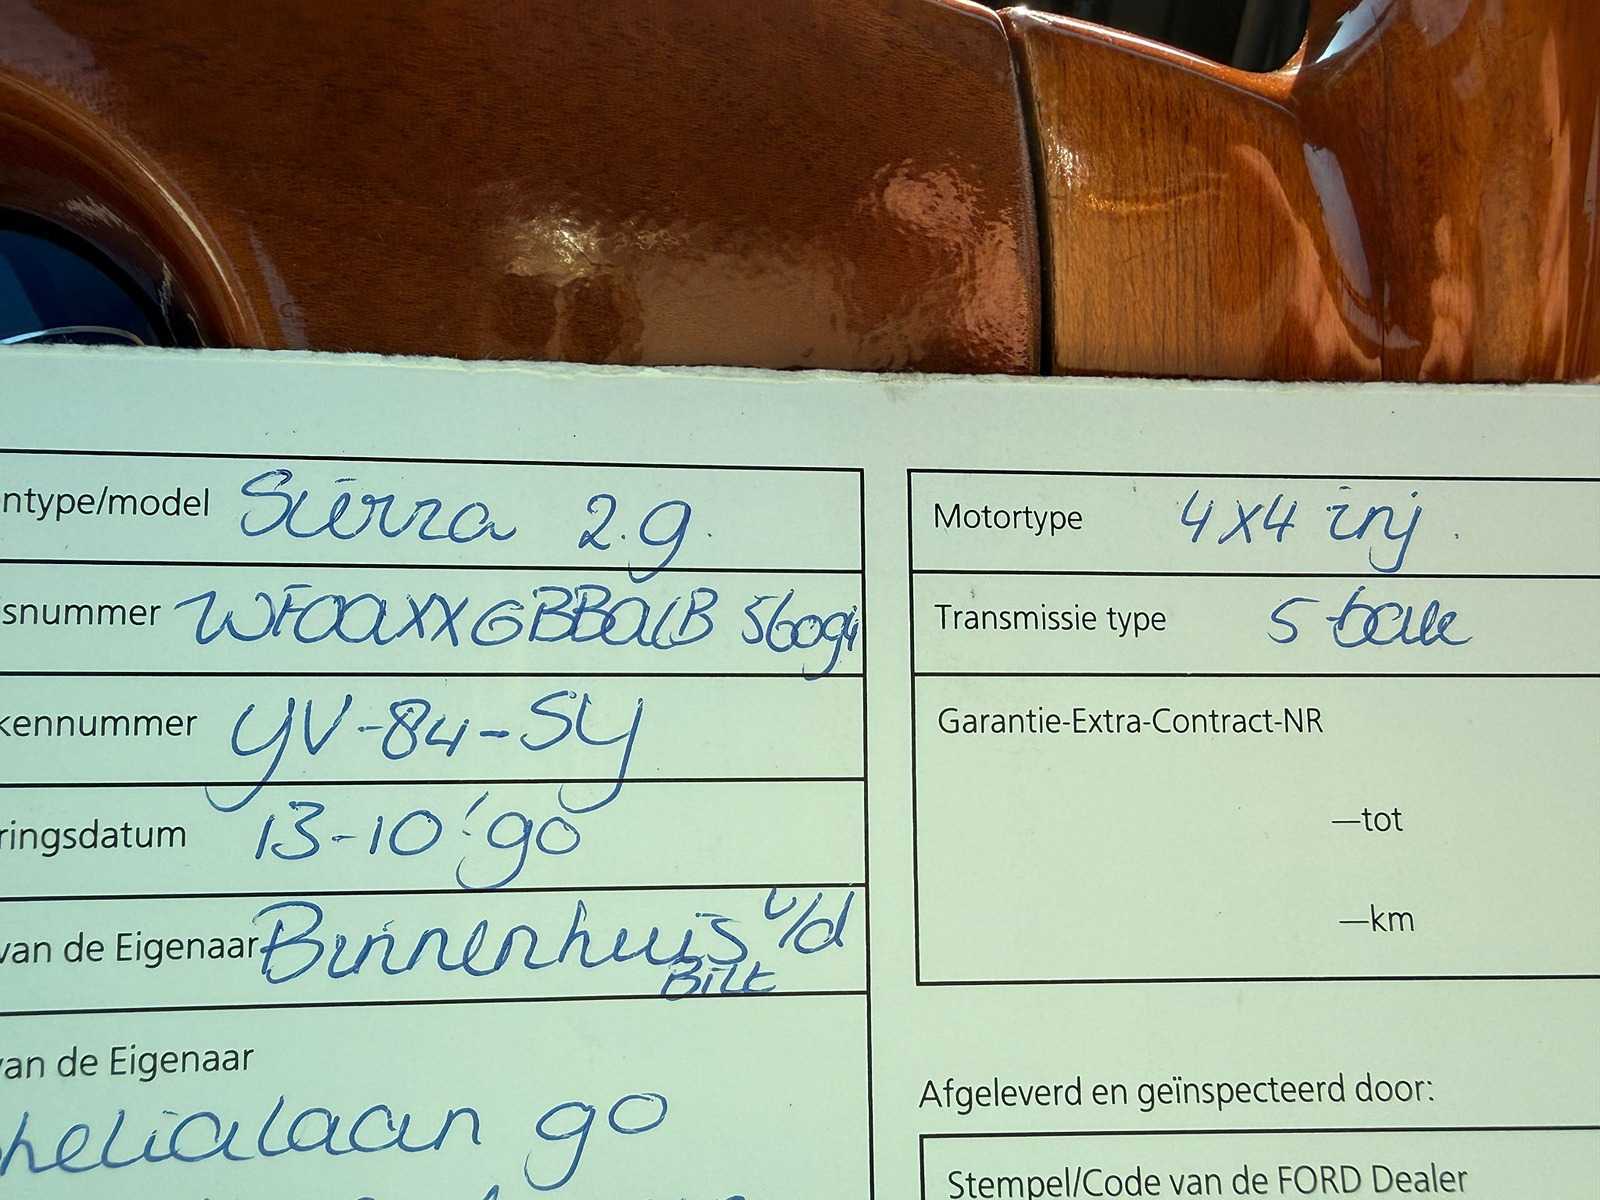 ntype/model Sierra 2.9.
snummer WFOAXXGBBALB 56094
kennummer YV-84-SY
ringsdatum 13-10-'90
van de Eigenaar Binnenhuis v/d
Bilt
van de Eigenaar
helialaan 90
Motortype 4x4 inj.
Transmissie type 5 bak
Garantie-Extra-Contract-NR
—tot
—km
Afgeleverd en geïnspecteerd door:
Stempel/Code van de FORD Dealer